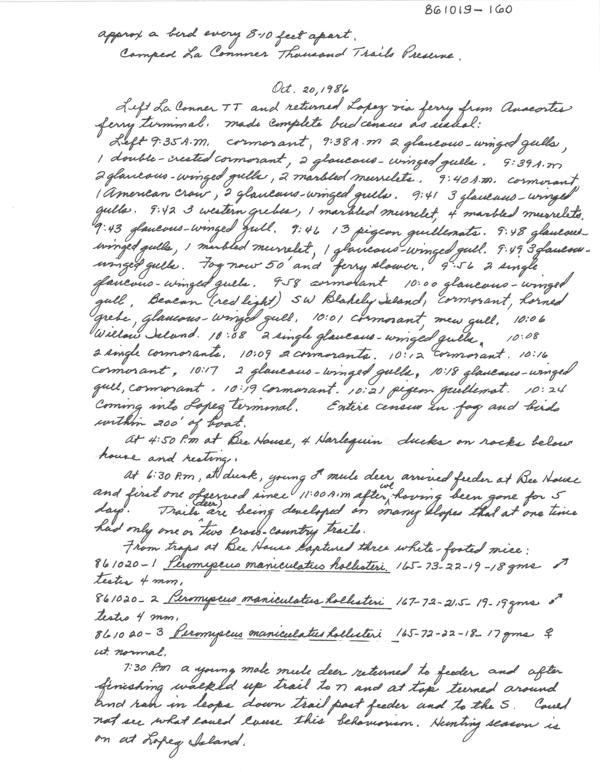 861019-160
approx a bird every 8-10 feet apart.
Camped La Conner Thousand Trails Preserve.
Oct. 20, 1986
Left La Conner TT and returned Lopez via ferry from Anacortes
ferry terminal. made complete bird census as usual:
Left 9:35 A.M. cormorant, 9:38 A.M 2 glaucous-winged gulls,
1 double-crested cormorant, 2 glaucous-winged gulls. 9:39 A.M
2 glaucous-winged gulls, 2 marbled murrelets. 9:40 A.M. cormorant,
1 American crow, 2 glaucous-winged gulls. 9:41 3 glaucous-winged
gulls. 9:42 3 western grebes, 1 marbled murrelet, 4 marbled murrelets.
9:43 glaucous-winged gull. 9:46 13 pigeon guillemots. 9:48 glaucous-
winged gulls, 1 marbled murrelet, 1 glaucous-winged gull. 9:49 3 glaucous-
winged gulls. Fog now 50' and ferry slower. 9:56 2 single
glaucous-winged gulls. 9:58 cormorant 10:00 glaucous-winged
gull, Beacon (red light) SW Blakely Island, cormorant, horned
grebe, glaucous-winged gull. 10:01 cormorant, mew gull. 10:06
Willow Island. 10:08 2 single glaucous-winged gulls, 10:08
2 single cormorants. 10:09 2 cormorants. 10:12 cormorant. 10:16
cormorant, 10:17 2 glaucous-winged gulls, 10:18 glaucous-winged
gull, cormorant. 10:19 cormorant. 10:21 pigeon guillemot. 10:24
coming into Lopez terminal. Entire census in fog and birds
within 200' of boat.
At 4:50 P.M at Bee House, 4 Harlequin ducks on rocks below
house and resting.
At 6:30 P.M, at dusk, young ♂ mule deer arrived feeder at Bee House
and first one observed since 11:00 A.M after we having been gone for 5
days. Trails (deer) are being developed on many slopes that at one time
had only one or two cross-country trails.
From traps at Bee House captured three white-footed mice:
861020-1 Peromyscus maniculatus hollisteri 165-73-22-19-18 gms ♂
testes 4 mm.
861020-2 Peromyscus maniculatus hollisteri 167-72-21.5-19-19 gms ♂
testes 4 mm.
861020-3 Peromyscus maniculatus hollisteri 165-72-22-18-17 gms ♀
ut. normal.
7:30 P.M a young male mule deer returned to feeder and after
finishing walked up trail to N and at top turned around
and ran in leaps down trail past feeder and to the S. Could
not see what could cause this behaviorism. Hunting season is
on at Lopez Island.